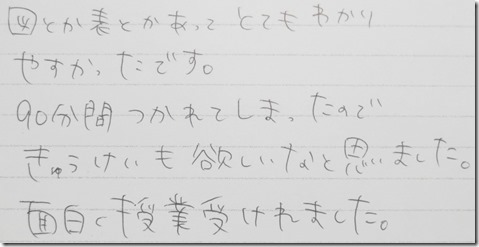 図とか表とかあって とても わかり
やすかったです。
90分間 つかれてしまったので
きゅうけいも 欲しいなと思いました。
面白く授業受けれました。